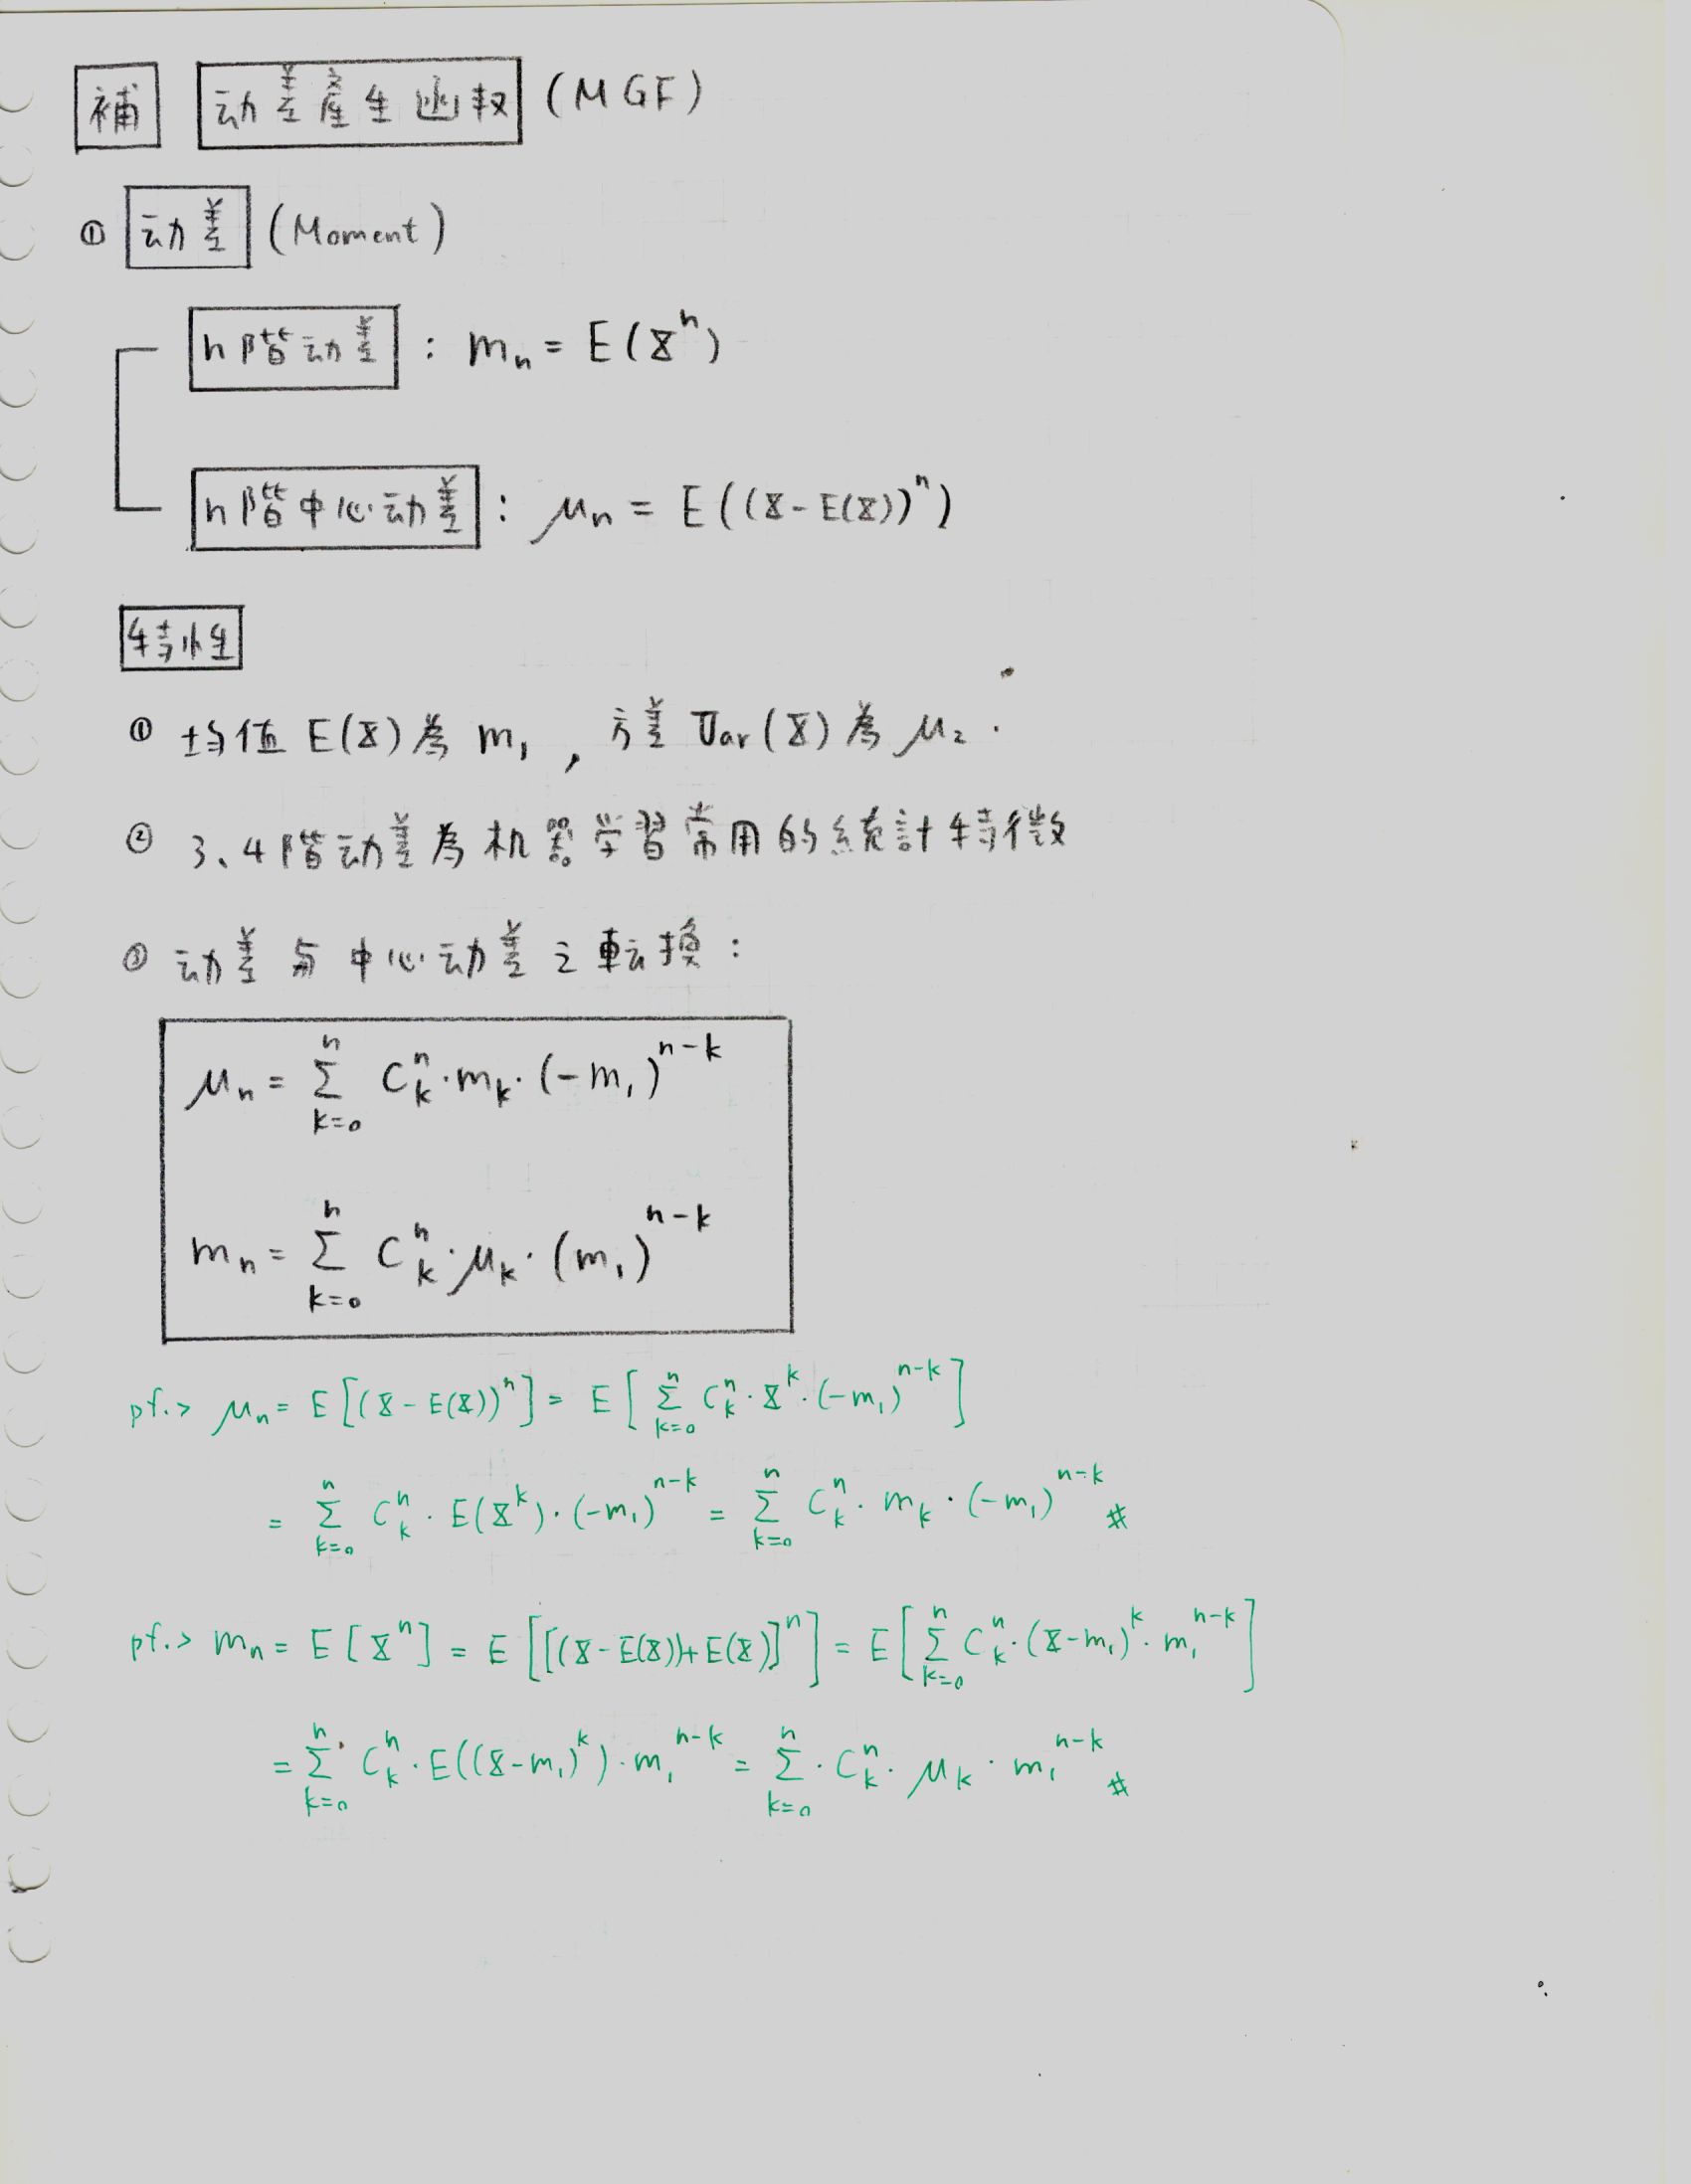 補 动差產生函数 (MGF)
① 动差 (Moment)
n階动差 : mₙ = E(Xⁿ)
n階中心动差 : μₙ = E((X-E(X))ⁿ)
特性
① 均值 E(X) 為 m₁ , 方差 Var(X) 為 μ₂ .
② 3、4階动差為机器学習常用的統計特徵
③ 动差与中心动差之転換 :
μₙ = Σ_{k=0}^{n} C_k^n · m_k · (-m₁)^{n-k}
mₙ = Σ_{k=0}^{n} C_k^n · μ_k · (m₁)^{n-k}
pf.> μₙ = E[(X-E(X))ⁿ] = E[Σ_{k=0}^{n} C_k^n · X^k · (-m₁)^{n-k}]
= Σ_{k=0}^{n} C_k^n · E(X^k) · (-m₁)^{n-k} = Σ_{k=0}^{n} C_k^n · m_k · (-m₁)^{n-k} #
pf.> mₙ = E[Xⁿ] = E[[(X-E(X))+E(X)]ⁿ] = E[Σ_{k=0}^{n} C_k^n · (X-m₁)^k · m₁^{n-k}]
= Σ_{k=0}^{n} C_k^n · E((X-m₁)^k) · m₁^{n-k} = Σ_{k=0}^{n} · C_k^n · μ_k · m₁^{n-k} #